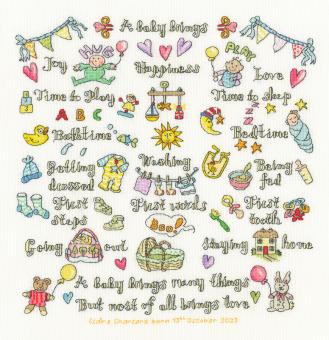 A baby brings
HUG
PLAY
Joy Happiness Love
Time to Play Time to sleep
A B C
Z Z Z
Bathtime Bedtime
Getting dressed Washing Being fed
First steps First words First tooth
Boo!
Going out Staying home
A baby brings many things
But most of all brings love
born 13th October 2023